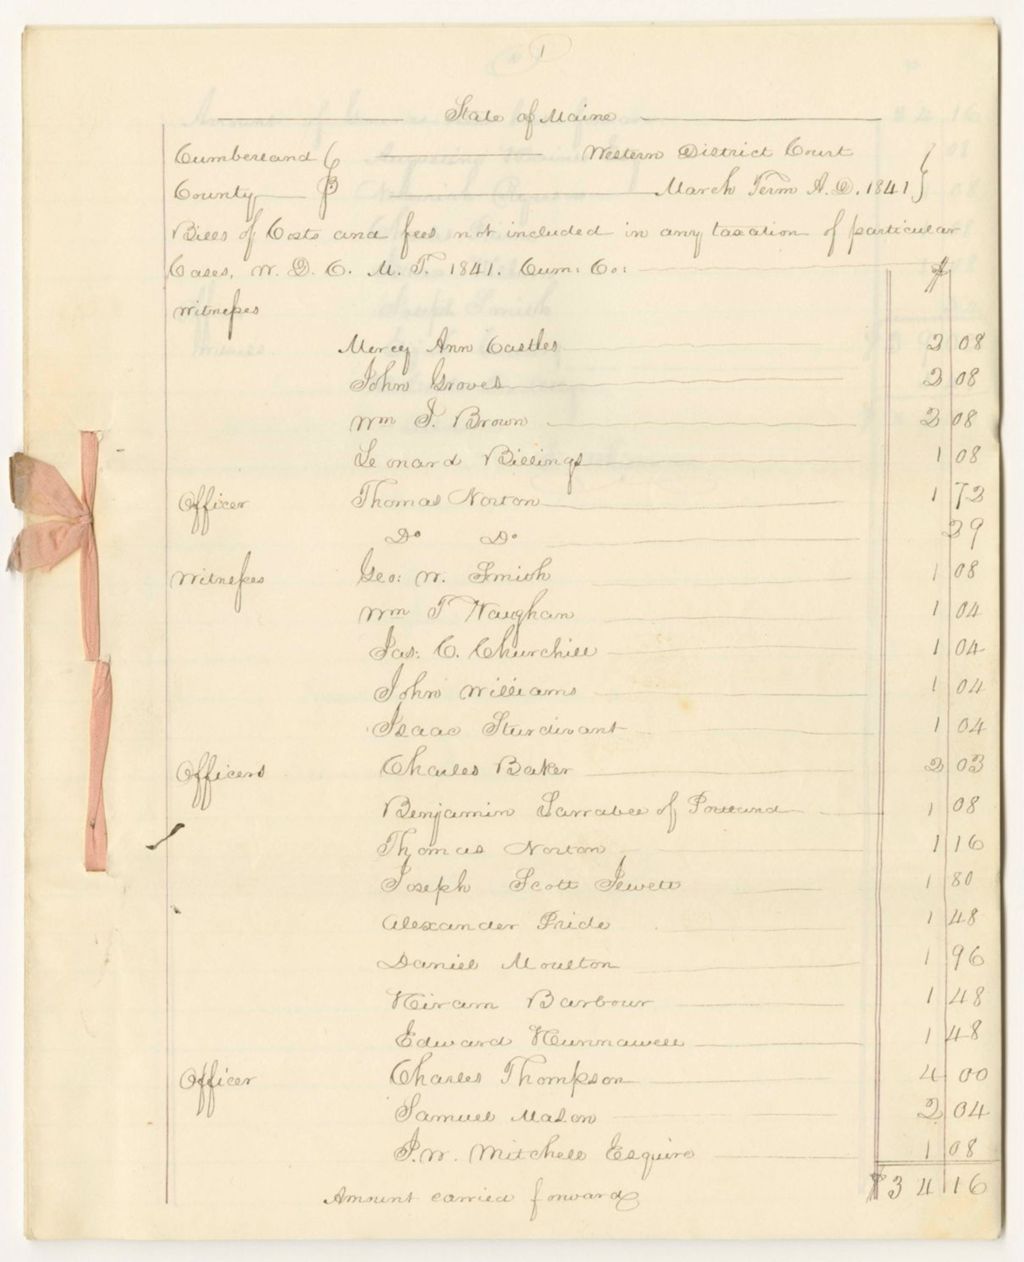 State of Maine
Cumberland Western District Court
County March Term A.D. 1841
Bills of Costs and fees not included in any taxation of particular
Cases, W. D. C. M. T. 1841. Cum: Co: $
Witnesses
Mercy Ann Castles 2 08
John Groves 2 08
Wm T. Brown 2 08
Leonard Billings 1 08
Officer Thomas Norton 1 72
Do Do 39
Witnesses Geo: W. Smith 1 08
Wm T Vaughan 1 04
Jas: C. Churchill 1 04
John Williams 1 04
Isaac Sturdivant 1 04
Officers Charles Baker 2 03
Benjamin Larrabee of Portland 1 08
Thomas Norton 1 16
Joseph Scott Jewett 1 80
Alexander Pride 1 48
Daniel Moulton 1 96
Hiram Barbour 1 48
Edward Hunnawell 1 48
Officer Charles Thompson 4 00
Samuel Mason 2 04
J. W. Mitchell Esquire 1 08
Amount carried forward $34 16